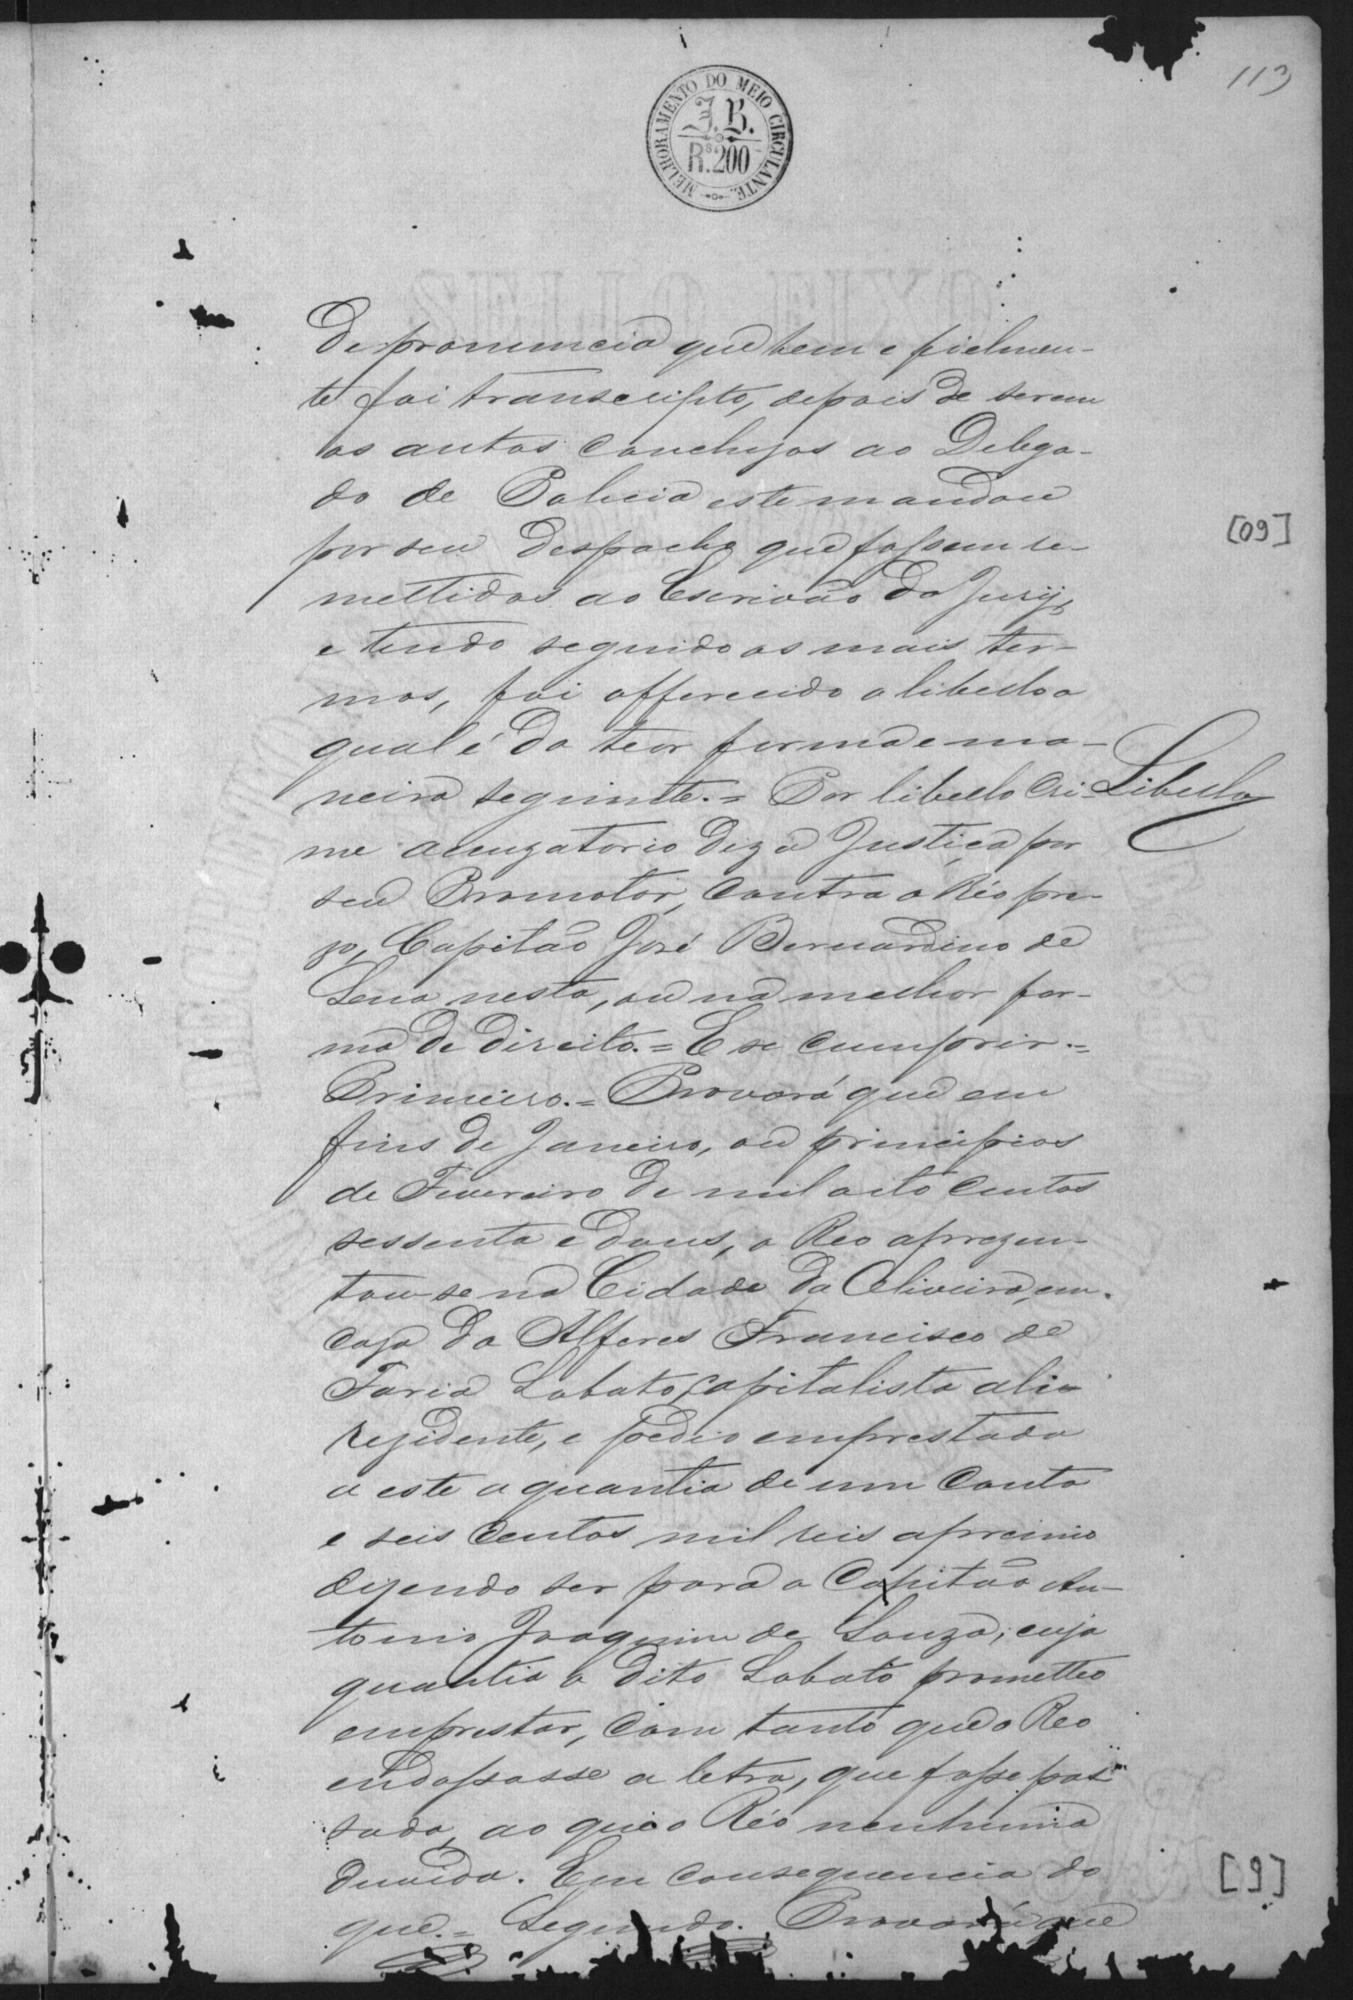 113
MELHORAMENTO DO MEIO CIRCULANTE.
J.B.
Rs.200
De pronuncia que bem e fielmen-
te foi transcripto, depois de serem
os autos concluzos ao Delega-
do de Policia este mandou
por seu Despacho que fossem re-
[09]
mettidos ao Escrivão do Jury,
e tendo seguido os mais ter-
mos, foi offerecido o libello o
qual é do teor forma e ma-
neira seguinte.= Por libello Cri-
Libello
me accuzatorio Diz a Justiça por
seu Promotor, Contra o Réo pre-
zo, Capitão José Bernardino de
Sena nesta, ou na melhor for-
ma de direito.= E se cumprir.=
Primeiro.= Provará que em
fins de Janeiro, ou principios
de Fevereiro de mil oito centos
sessenta e dous, o Reo aprezen-
tou-se na Cidade da Oliveira, em
caza do Alferes Francisco de
Faria Lobato, Capitalista ali
rezidente, e pedio emprestado
a este a quantia de um Conto
e seis Centos mil reis a premio
dizendo ser para o Capitão An-
tonio Joaquim de Souza; cuja
quantia o dito Lobato prometteo
emprestar, Com tanto que o Reo
endossasse a letra, que fosse pas
sada, ao que o Réo nenhuma
duvida. Em consequencia do
[9]
que.= Segundo. Provará que